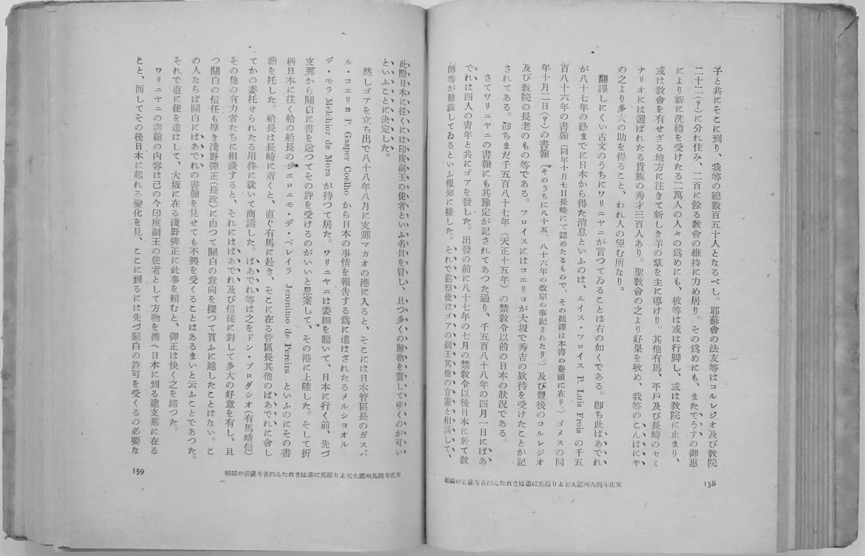 子と共にそこに到り、我等の總數百五十人となるべし。耶蘇會の法友等はコルレジオ及び敎院
二十二(?)に分れ住み、二百に餘る敎會の維持に力め居り。その爲めにも、またでうすの御惠
により新に洗禮を受けたる二萬人の人々の爲めにも、彼等は或は行脚し、或は敎院に止まり、
或は敎會を有せざる地方に注きて新しき羊の羣を主に導けり。其他有馬、平戶及び長崎のセミ
ナリオには選ばれたる貴族の秀才三百人あり。聖敎會の之より好果を收め、我等のこんぱにや
の之より多大の助を得ること、われ人の望む所なり。
飜譯しにくい古文のうちにワリニヤニが言つてゐることは右の如くである。卽ち此ばあでれ
が八十七年の終までに日本から得た消息といふのは、ルイス・フロイス P. Luis Frois の千五
百八十六年の書翰(同年十月七日長崎にて認めたるもので、その拙譯は本書の卷頭に在り)ゴメスの同
年十月二日(?)の書翰(そのうちに八十五、八十六年の改宗の事記されたり)及び豐後のコルレジオ
及び敎院の長老のもの等である。フロイスにはコエリヨが大坂で秀吉の歡待を受けたことが記
されてある。卽ちまだ千五百八十七年(天正十五年)の禁敎令以前の日本の狀況である。
さてワリニヤニの書翰にも其豫定が記されてあつた通り、千五百八十八年の四月一日にばあ
でれは四人の靑年と共にゴアを發した。出發の前に八十七年の七月の禁敎令以後日本に於て敎
師等が難澁してゐるといふ報知に接した。それで巡察使はゴアの副王其他の官憲と相談して、
天正年間九州諸大名より羅馬に遣はされたる四靑年使者の記錄
158
此際日本に往くには印度副王の使者といふ名目を冒し、且つ多くの財物を齎してゆくのが可い
といふことに決定した。
然しゴアを立ち出で八十八年八月に支那マカオの港に入ると、そこには日本管區長のガスパ
ル・コエリヨ P. Gasper Coelho から日本の事情を報告する爲に遣はされたるメルショオル
デ・モラ Melchior de Mora が待つて居た。ワリニヤニは委細を聽いて、日本に行く前、先づ
支那から關白に書を送つてその許を受けるのがいいと思案して、その港に上陸した。そして折
柄日本に往く船の船長のジエロニモ・デ・ペレイラ Jeronimo de Pereira といふのにその書
翰を托した。船長は長崎に着くと、直ぐ有馬に赴き、そこに在る管區長其他のぱあでれに會し
てかの委托せられたる用件に就いて商議した。ぱあでれ等は之をドン・プロタシオ(有馬晴信)
その他の有力者たちに相談すると、それにはぱあでれ及び信徒に對して多大の好意を有し、且
つ關白の信任も厚き淺野彈正(長政)に由つて關白の意向を探つて貰ふに越したことはない。こ
の人ならば關白にぱあでれの書翰を見せても不興を受くることはあるまいと云ふことであつた。
それで直に使を遣はして、大坂に在る淺野彈正に此事を賴むと、彈正は快く之を諾つた。
ワリニヤニの書翰の內容は己の今印度副王の使者として方物を携へ日本に到る途支那に在る
こと、而してその後日本に起れる變化を見、ここに到るには先づ關白の許可を受くるの必要な
天正年間九州諸大名より羅馬に遣はされたる四靑年使者の記錄
159